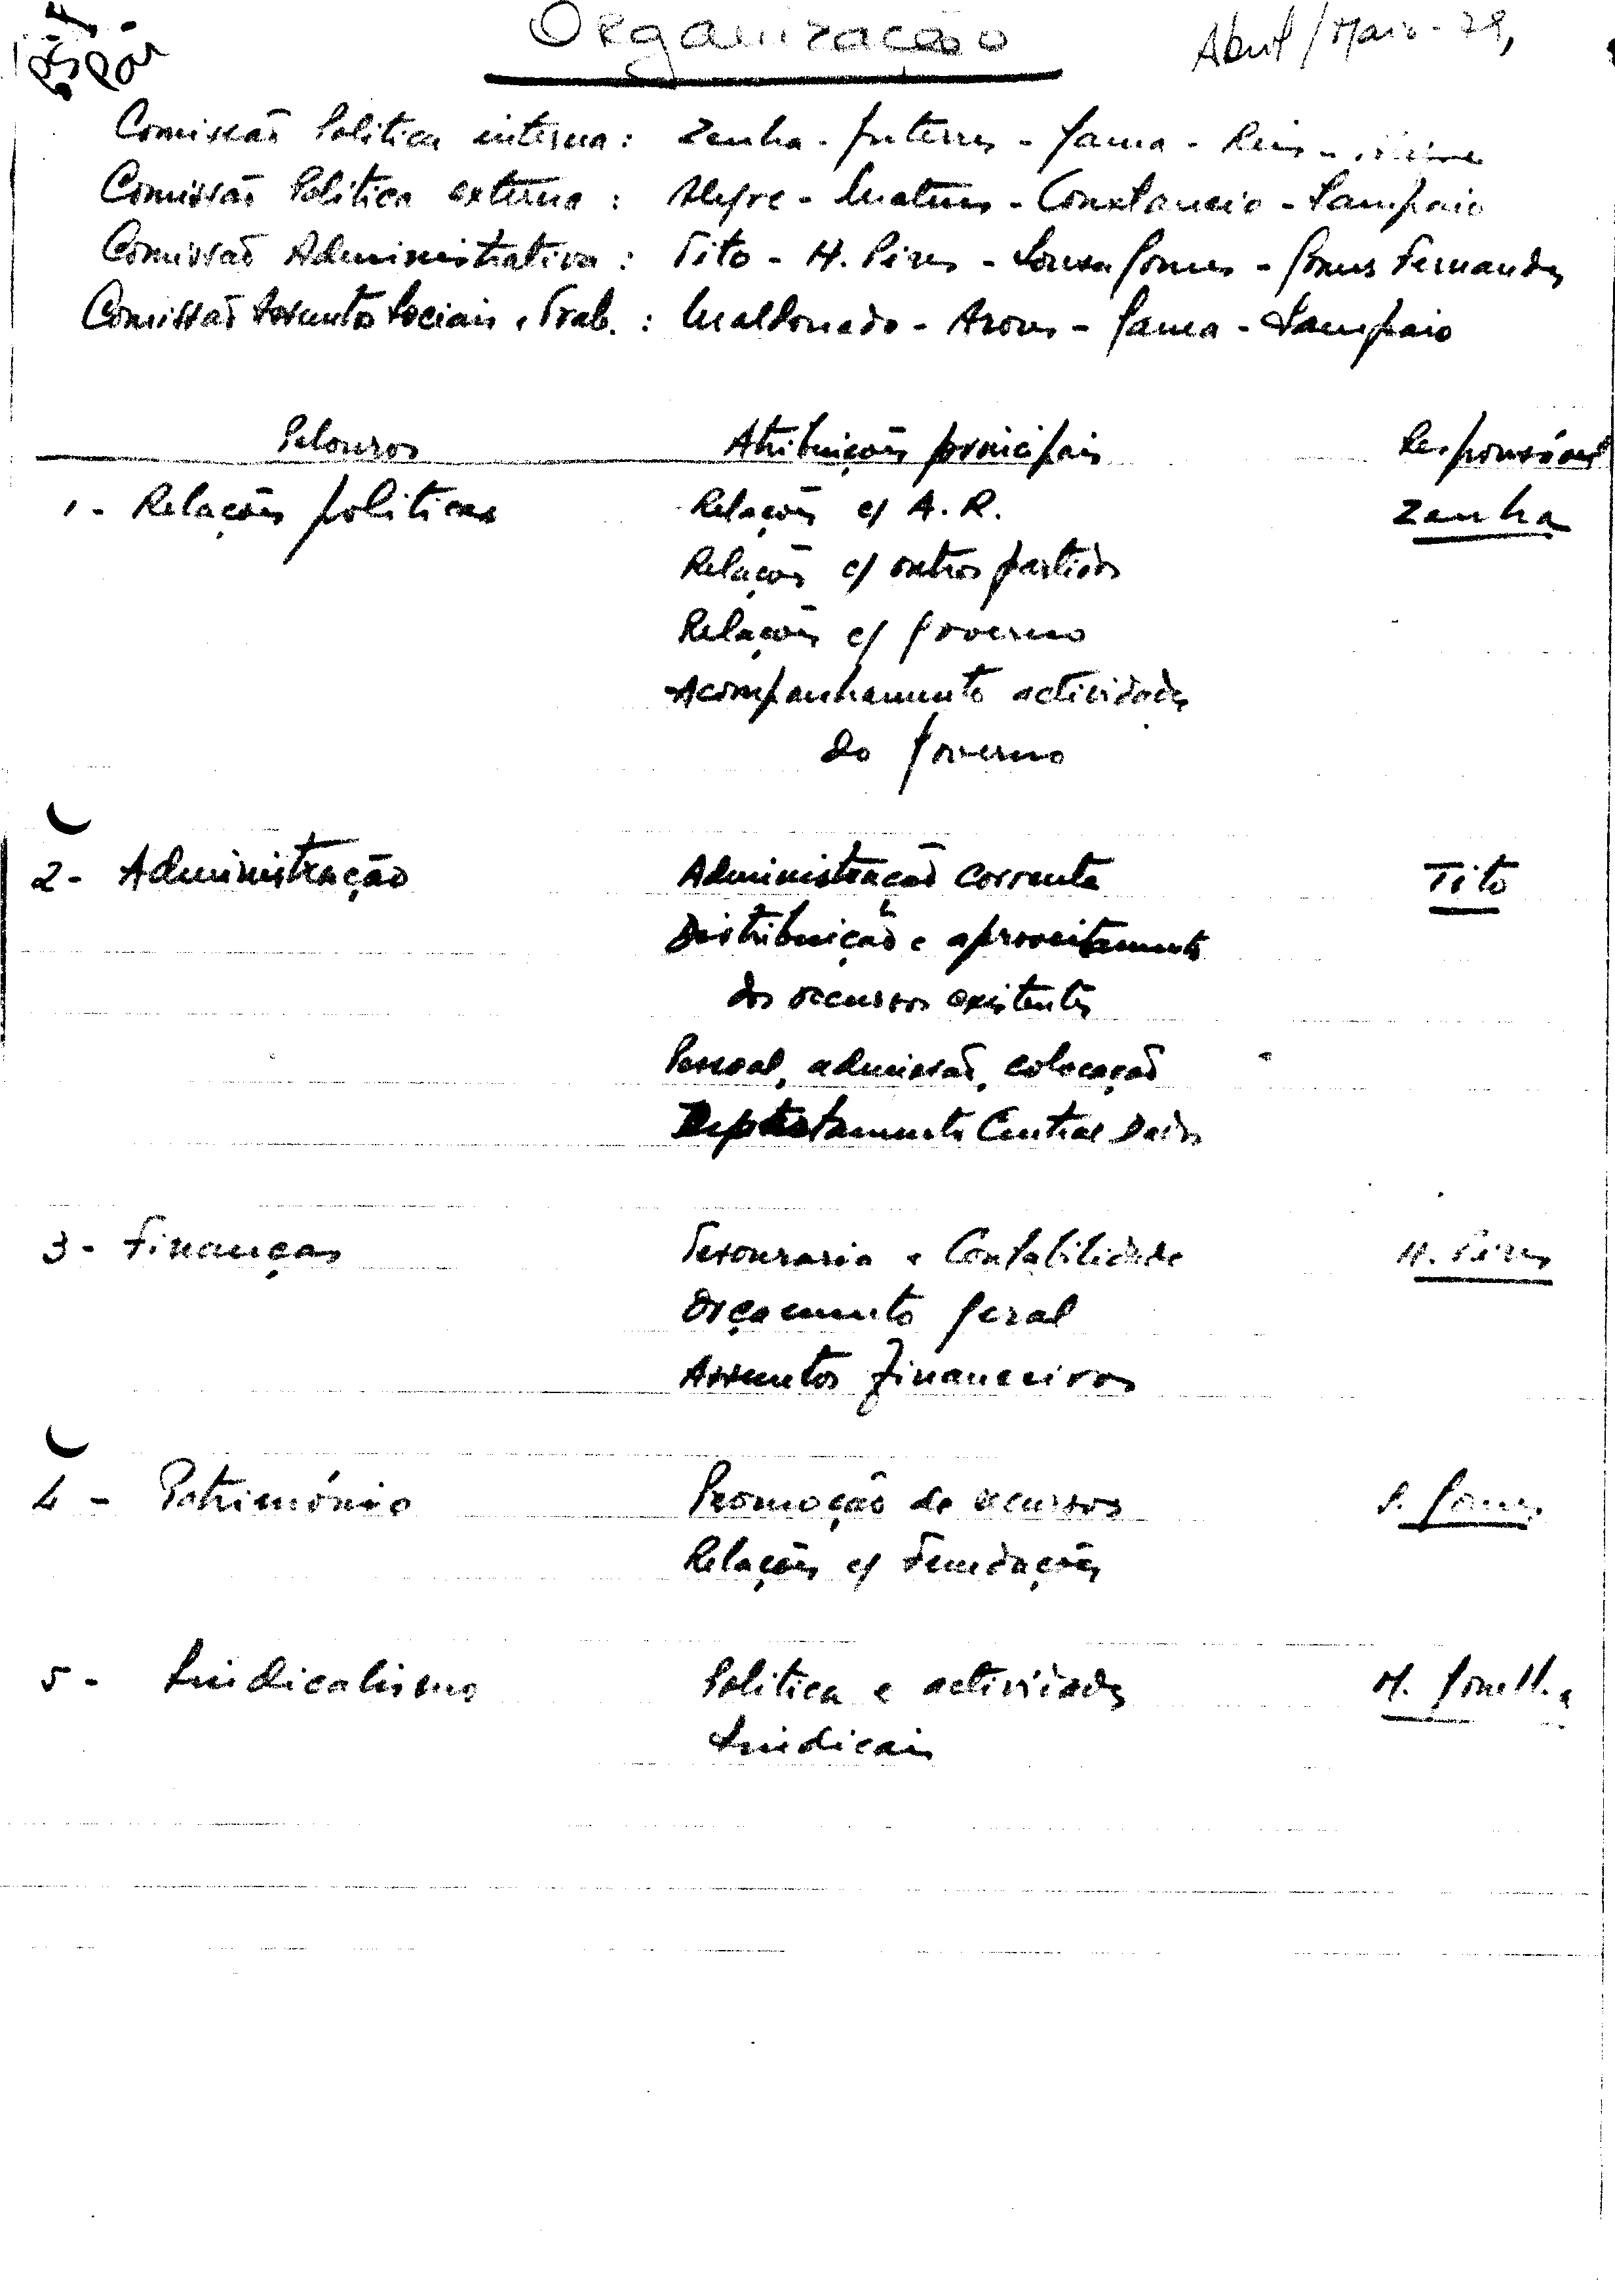 Organização
Abril/Maio-79,
Comissão Politica interna: Zenha - Guterres - Gama - Reis -
Comissão Politica externa: Alegre - Mateus - Constancio - Sampaio
Comissão Administrativa: Tito - H. Pires - Sousa Gomes - Gomes Fernandes
Comissão Assuntos Sociais e Trab.: Maldonado - Arons - Gama - Sampaio
Pelouros Atribuições principais Responsável
1 - Relações politicas Relações c/ A. R. Zenha
Relações c/ outros partidos
Relações c/ governo
Acompanhamento actividades
do governo
2 - Administração Administração corrente Tito
Distribuição e aproveitamento
dos recursos existentes
Pessoal, admissão, colocação
Departamento Central Dados
3 - Finanças Tesouraria e Contabilidade H. Pires
Orçamento geral
Assuntos financeiros
4 - Património Promoção de recursos S. Gomes
Relações c/ Fundações
5 - Sindicalismo Politica e actividades M.
Sindicais